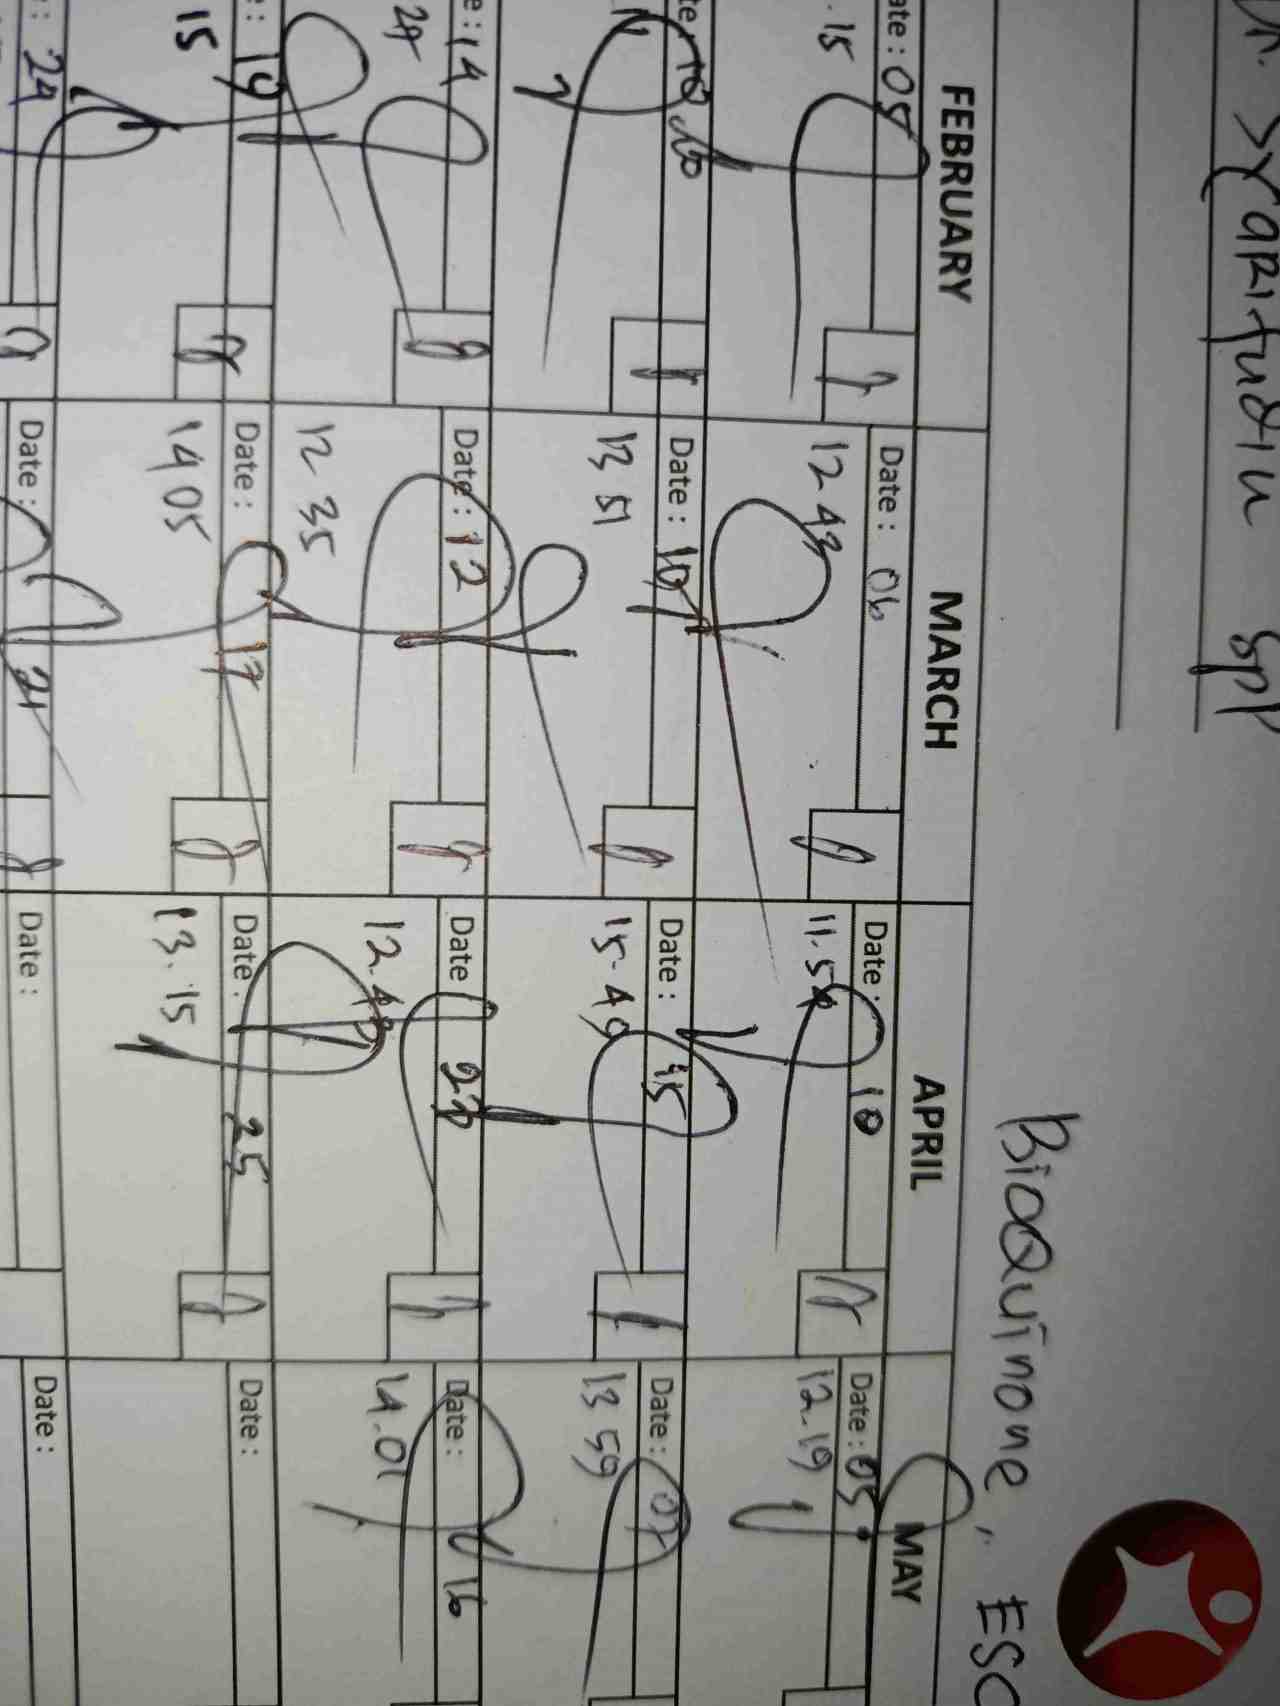 Dr. Syarifudin SpP
BioQuinone, ESO
FEBRUARY MARCH APRIL MAY
ate: 05 Date: 06 Date: 10 Date: 05
.15 12 43 11.54 12.19
te: 10 Date: 10 Date: 15 Date: 07
13 51 15.49 13 59
e: 14 Date: 12 Date 22 Date: 16
12 35 12.42 14.01
: 19 Date: 17 Date: 25 Date:
15 14 05 13.15
: 24 Date: 21 Date: Date: